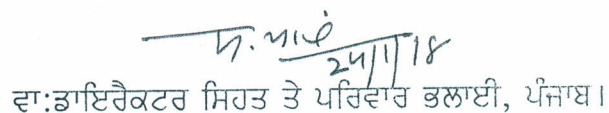 24/1/18
ਵਾ:ਡਾਇਰੈਕਟਰ ਸਿਹਤ ਤੇ ਪਰਿਵਾਰ ਭਲਾਈ, ਪੰਜਾਬ।